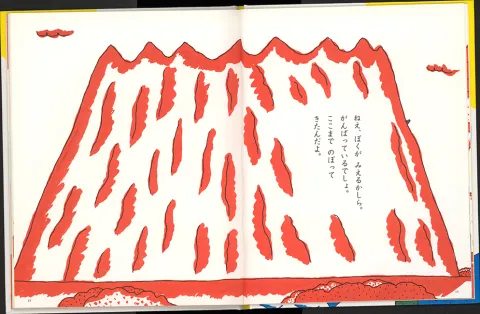 ねえ、ぼくが みえるかしら。
がんばっているでしょ。
ここまで のぼって
きたんだよ。